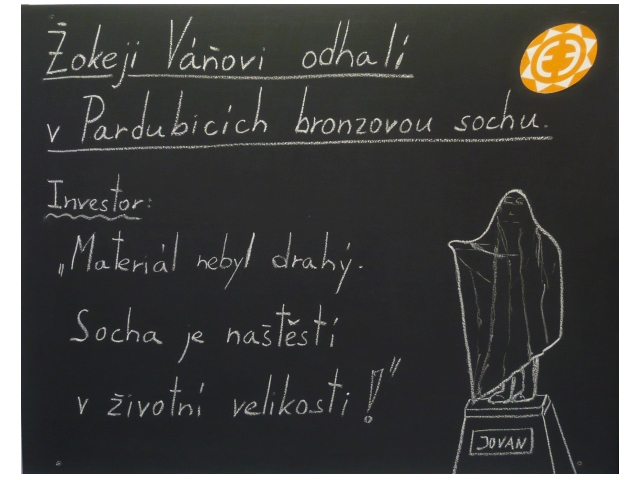 Žokeji Váňovi odhalí
v Pardubicích bronzovou sochu.
Investor:
„Materiál nebyl drahý.
Socha je naštěstí
v životní velikosti!"
JOVAN